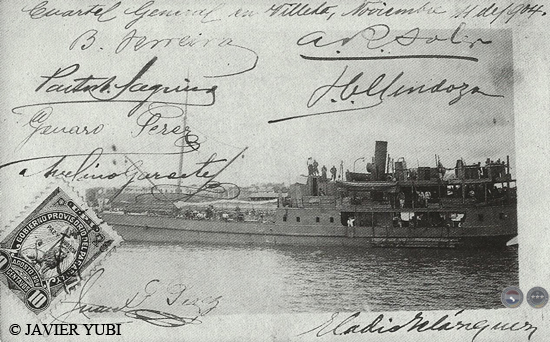 Cuartel General en Villeta, Noviembre 11 de 1904.
B. Ferreira
A.R. Soler
H. C. Mendoza
Genaro Perez
Avelino Garcete
GOBIERNO PROVISORIO DEL PARAGUAY
10
Juan G. Perez
Eladio Velázquez
© JAVIER YUBI